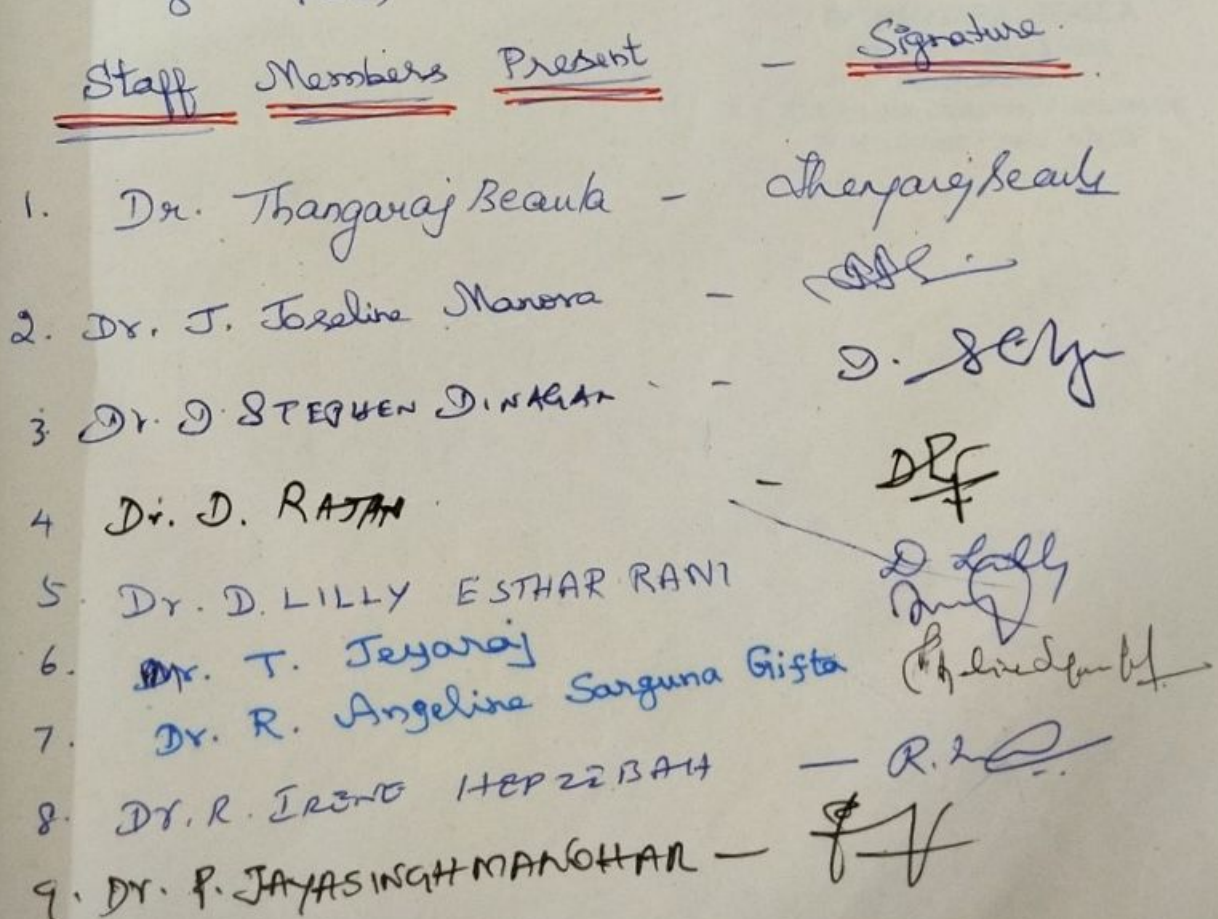 Staff Members Present - Signature.
1. Dr. Thangaraj Beaula - Thangaraj Beaula
2. Dr. J. Joseline Manora -
3. Dr. D STEPHEN DINAGAR - D.
4 Dr. D. RAJAN -
5. Dr. D. LILLY ESTHAR RANI D. Lilly
6. Dr. T. Jeyaraj
7. Dr. R. Angeline Sarguna Gifta
8. Dr. R. IRENE HEPZIBAH - R.
9. DR. P. JAYASINGH MANOHAR -